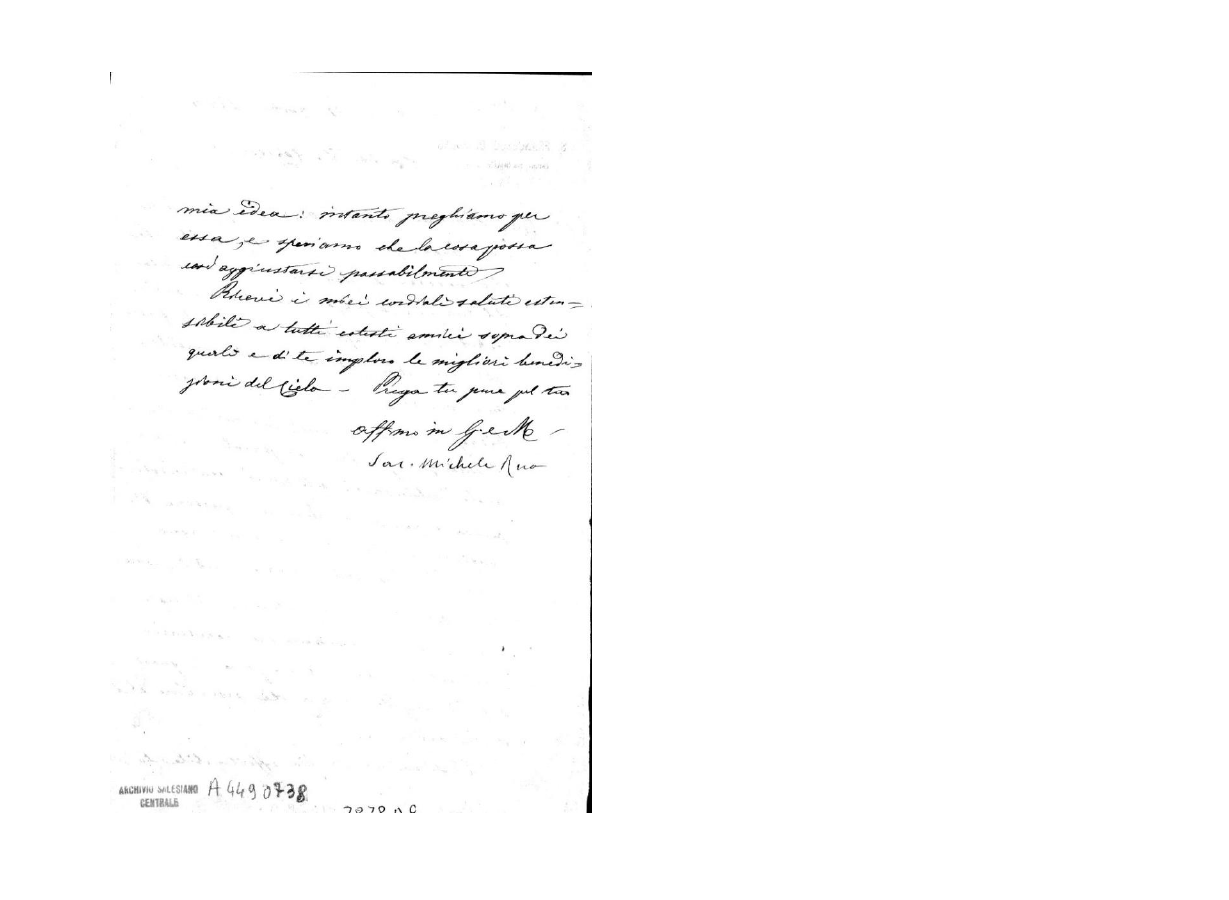 mia idea: intanto preghiamo per
essa, e speriamo che la cosa possa
così aggiustarsi passabilmente
Ricevi i miei cordiali saluti esten=
sibili a tutti cotesti amici sopra dei
quali e di te imploro le migliori benedi=
zioni del Cielo – Prega tu pure pel tuo
affmo in G. e M.
Sac. Michele Rua
ARCHIVIO SALESIANO
CENTRALE
A4490738